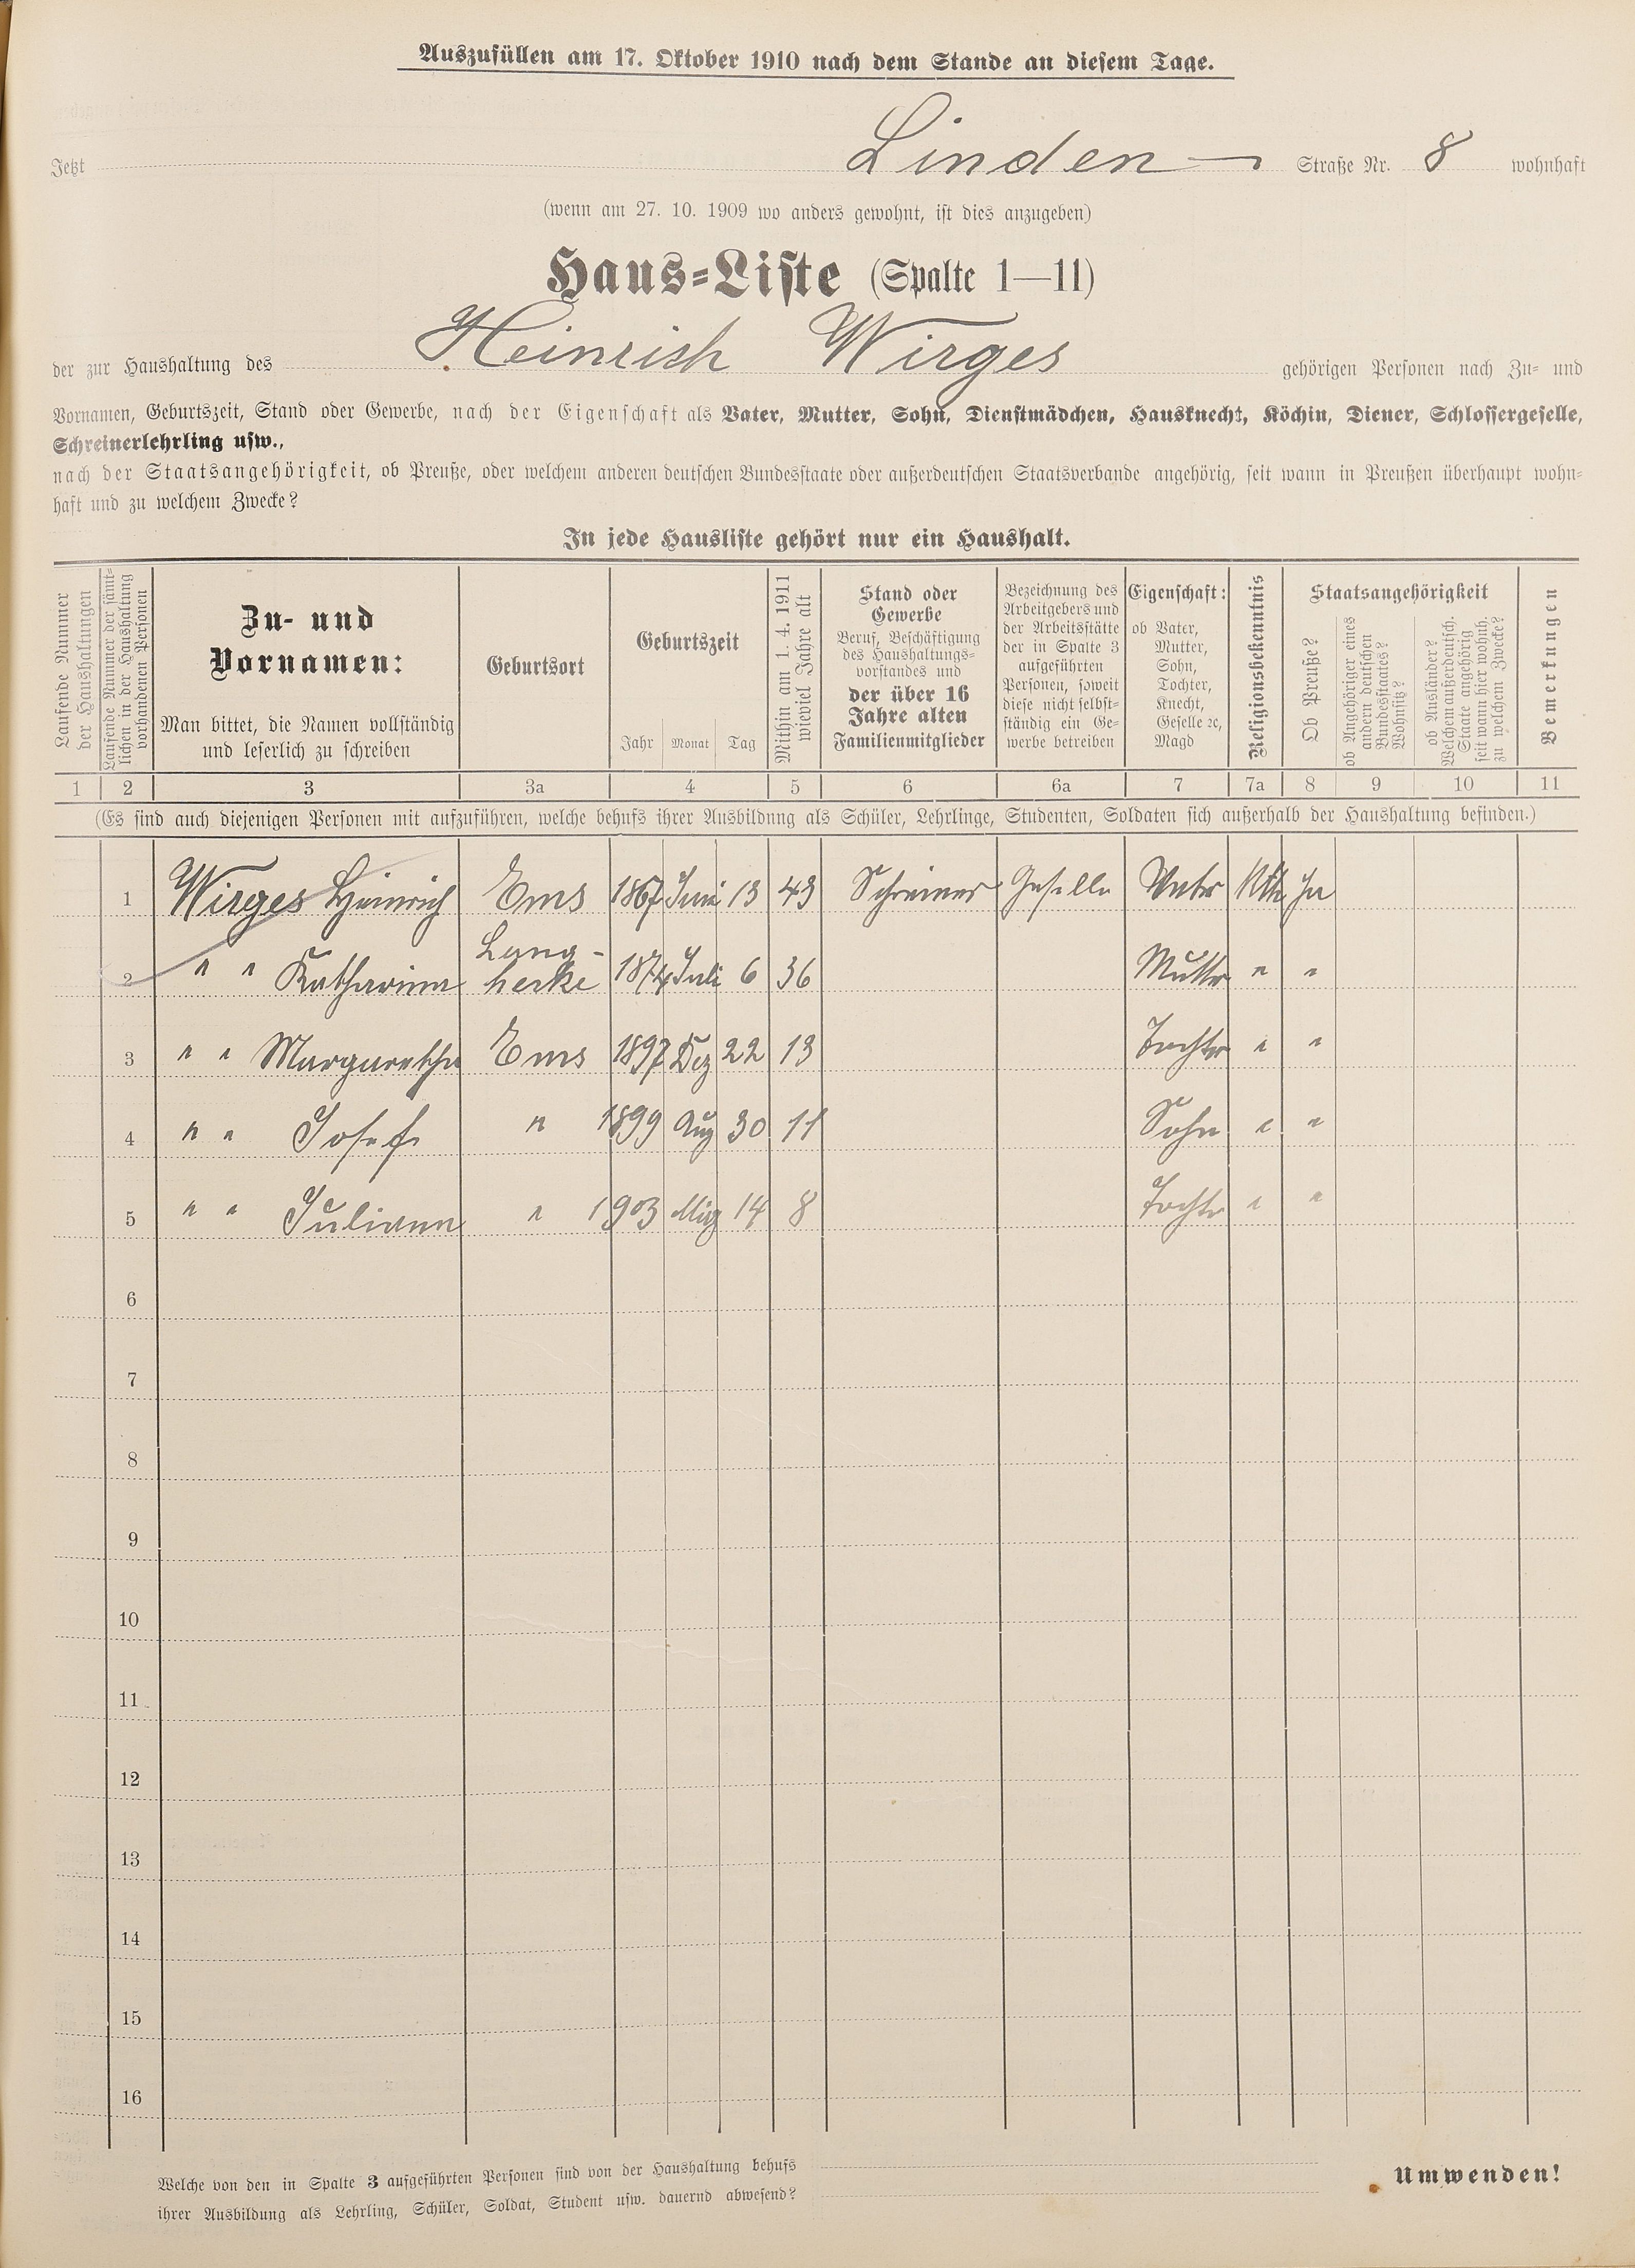 Auszufüllen am 17. Oktober 1910 nach dem Stande an diesem Tage.
Jetzt Linden- Straße Nr. 8 wohnhaft
(wenn am 27. 10. 1909 wo anders gewohnt, ist dies anzugeben)
Haus-Liste (Spalte 1—11)
der zur Haushaltung des Heinrich Wirges gehörigen Personen nach Zu- und
Vornamen, Geburtszeit, Stand oder Gewerbe, nach der Eigenschaft als Vater, Mutter, Sohn, Dienstmädchen, Hausknecht, Köchin, Diener, Schlossergeselle,
Schreinerlehrling usw.,
nach der Staatsangehörigkeit, ob Preuße, oder welchem anderen deutschen Bundesstaate oder außerdeutschen Staatsverbande angehörig, seit wann in Preußen überhaupt wohn-
haft und zu welchem Zwecke?
In jede Hausliste gehört nur ein Haushalt.
Laufende Nummer
der Haushaltungen
Laufende Nummer der sämt-
lichen in der Haushaltung
vorhandenen Personen
Zu- und
Vornamen:
Man bittet, die Namen vollständig
und leserlich zu schreiben
Geburtsort
Geburtszeit
Jahr Monat Tag
Mithin am 1. 4. 1911
wieviel Jahre alt
Stand oder
Gewerbe
Beruf, Beschäftigung
des Haushaltungs-
vorstandes und
der über 16
Jahre alten
Familienmitglieder
Bezeichnung des
Arbeitgebers und
der Arbeitsstätte
der in Spalte 3
aufgeführten
Personen, soweit
diese nicht selbst-
ständig ein Ge-
werbe betreiben
Eigenschaft:
ob Vater,
Mutter,
Sohn,
Tochter,
Knecht,
Geselle ꝛc,
Magd
Religionsbekenntnis
Staatsangehörigkeit
Ob Preuße?
ob Angehöriger eines
andern deutschen
Bundesstaates?
Wohnsitz?
ob Ausländer?
Welchem außerdeutsch.
Staate angehörig
seit wann hier wohnh.
zu welchem Zwecke?
Bemerkungen
1 2 3 3a 4 5 6 6a 7 7a 8 9 10 11
(Es sind auch diejenigen Personen mit aufzuführen, welche behufs ihrer Ausbildung als Schüler, Lehrlinge, Studenten, Soldaten sich außerhalb der Haushaltung befinden.)
1 Wirges Heinrich Ems 1867 Juni 13 43 Schreiner Geselle Vater Kth Ja
2 " " Katharina Lang-
hecke 1874 Juli 6 36 Mutter " "
3 " " Margaretha Ems 1897 Dez 22 13 Tochter " "
4 " " Josef " 1899 Aug 30 11 Sohn " "
5 " " Juliana " 1903 Mrz 14 8 Tochter " "
6
7
8
9
10
11
12
13
14
15
16
Welche von den in Spalte 3 aufgeführten Personen sind von der Haushaltung behufs
ihrer Ausbildung als Lehrling, Schüler, Soldat, Student usw. dauernd abwesend?
Umwenden!